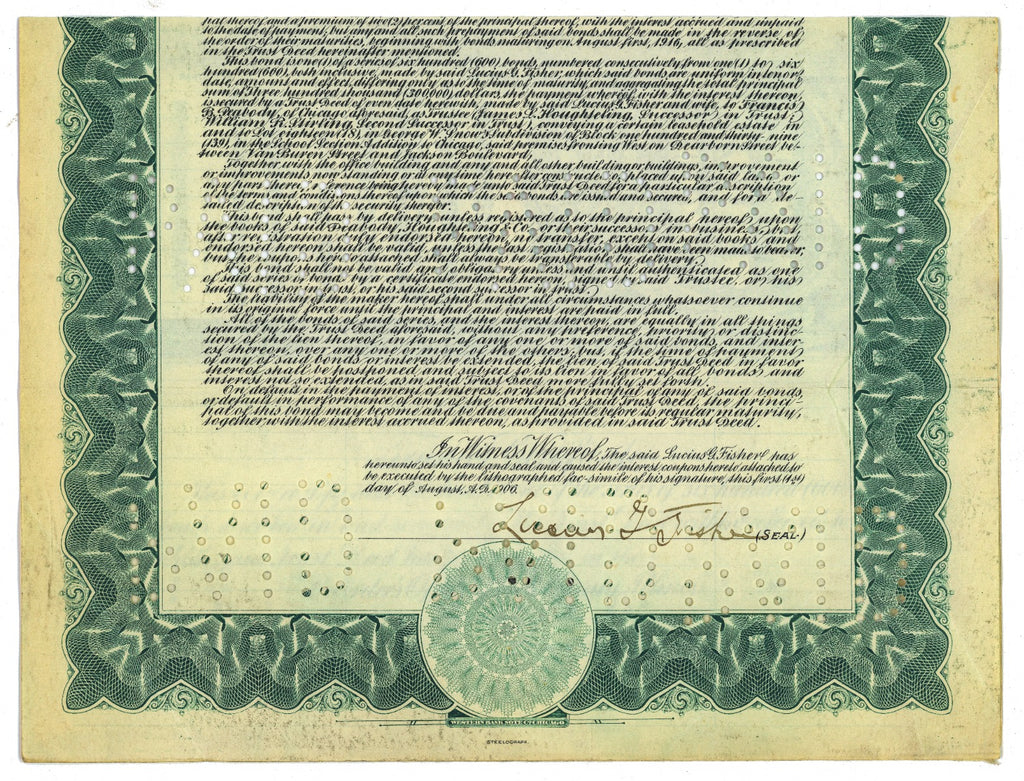 pal thereof and a premium of two (2) per cent of the principal thereof, with the interest accrued and unpaid
to the date of payment, but any and all such prepayment of said bonds shall be made in the reverse of
the order of their maturities, beginning with bonds maturing on August first, 1916, all as prescribed
in the Trust Deed hereinafter mentioned.
This bond is one (1) of a series of six hundred (600) bonds, numbered consecutively from one (1) to six
hundred (600), both inclusive, made by said Lucius G. Fisher, which said bonds are uniform in tenor,
date, amount and effect, differing only as to the time of maturity, and aggregating the total principal
sum of three hundred thousand (300,000) dollars, the payment whereof, with the interest thereon,
is secured by a Trust Deed of even date herewith, made by said Lucius G. Fisher and wife, to Francis
B. Peabody, of Chicago, Illinois, as Trustee (James L. Houghteling, Successor in Trust;
Adam K. Stirling, Second Successor in Trust), conveying a certain leasehold estate in
and to Lot eighteen (18), in George W. Snow's Subdivision of Block one hundred and thirty-nine
(139), in the School Section Addition to Chicago, said premises fronting West on Dearborn Street be-
tween Van Buren Street and Jackson Boulevard,
Together with the office building and any and all other building or buildings, improvement
or improvements now standing or at any time hereafter made or placed upon said land or
any part thereof, reference being hereby made unto said Trust Deed for a particular description
of the terms and conditions thereof upon which these bonds are issued and secured, and for a de-
tailed description of the security therefor.
This bond shall pass by delivery, unless registered as to the principal thereof on
the books of said Peabody, Houghteling & Co., or their successors in business, but
after registration duly endorsed hereon, no transfer, except on said books and
endorsed hereon, shall be valid, unless the last registration shall have been made to bearer,
but the coupons hereto attached shall always be transferable by delivery.
This bond shall not be valid and obligatory unless and until authenticated as one
of said bonds by a certificate endorsed hereon, signed by said Trustee, or his
said successor in trust, or his said second successor in trust.
The liability of the maker hereof shall under all circumstances whatsoever continue
in its original force until the principal and interest are paid in full.
All of the bonds of said series, and the interest thereon, are equally in all things
secured by the Trust Deed aforesaid, without any preference, priority or distinc-
tion of the lien thereof, in favor of any one or more of said bonds, and inter-
est thereon, over any one or more of the others; but, if the time of payment
of any of said bonds or interest be extended, the lien of said Trust Deed in favor
thereof shall be postponed and subject to its lien in favor of all bonds and
interest not so extended, as in said Trust Deed more fully set forth.
On default in the payment of interest, or of the principal of any of said bonds,
or default in performance of any of the covenants of said Trust Deed, the princi-
pal of this bond may become and be due and payable before its regular maturity,
together with the interest accrued thereon, as provided in said Trust Deed.
In Witness Whereof, The said Lucius G. Fisher has
hereunto set his hand and seal and caused the interest coupons hereto attached to
be executed by the lithographed fac-simile of his signature, this first (1st)
day of August, A.D. 1906.
Lucius G. Fisher (SEAL.)
WESTERN BANK NOTE CO. CHICAGO.
STEELOGRAPH.